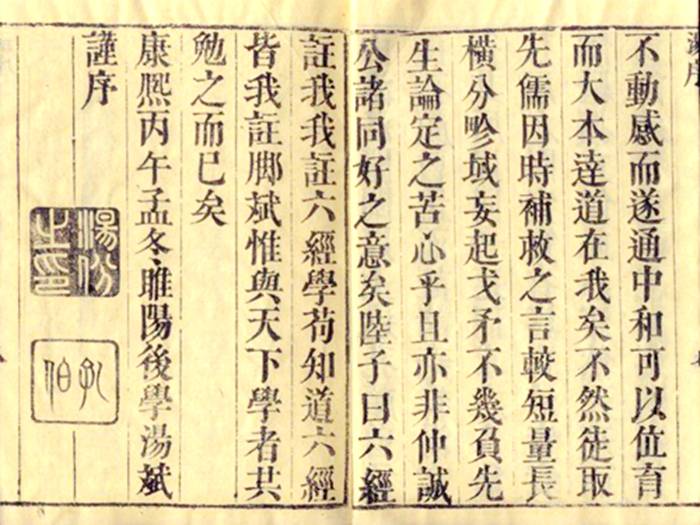 序
不動感而遂通中和可以位育
而大本達道在我矣不然徒取
先儒因時補救之言較短量長
橫分畛域妄起戈矛不幾負先
生論定之苦心乎且亦非仲誠
公諸同好之意矣陸子曰六經
註我我註六經學苟知道六經
皆我註脚斌惟與天下學者共
勉之而已矣
康熙丙午孟冬睢陽後學湯斌
謹序
湯斌
之印
孔伯